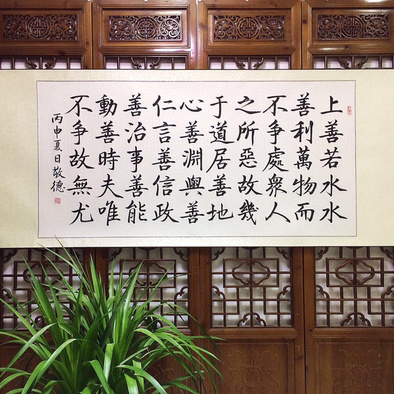 上善若水水
善利萬物而
不争處衆人
之所惡故幾
于道居善地
心善淵與善
仁言善信政
善治事善能
動善時夫唯
不争故無尤
丙申夏日敬德